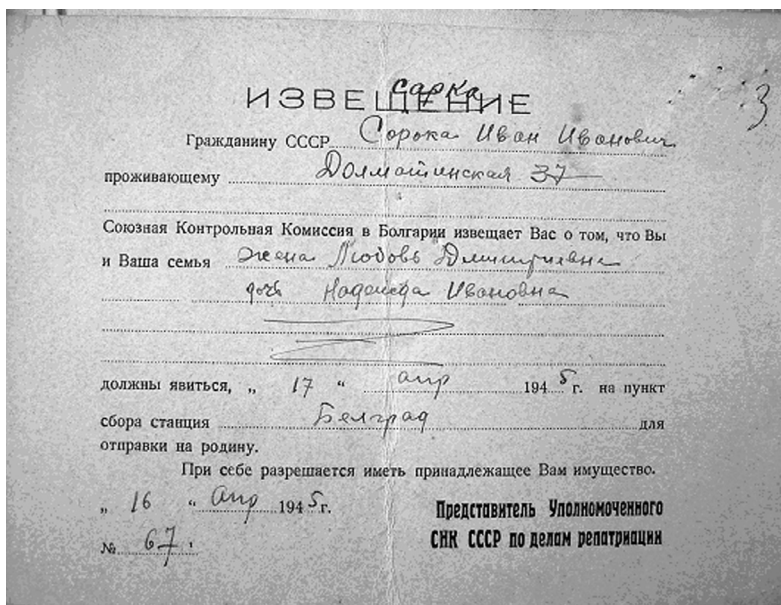 Сарка
ИЗВЕЩЕНИЕ
3
Гражданину СССР Сорока Иван Иванович
проживающему Долматинская 37
Союзная Контрольная Комиссия в Болгарии извещает Вас о том, что Вы
и Ваша семья жена Любовь Дмитриевна
дочь Надежда Ивановна
должны явиться, „ 17 “ апр 1945г. на пункт
сбора станция Белград для
отправки на родину.
При себе разрешается иметь принадлежащее Вам имущество.
„ 16 “ апр 1945г.
Представитель Уполномоченного
СНК СССР по делам репатриации
№ 67